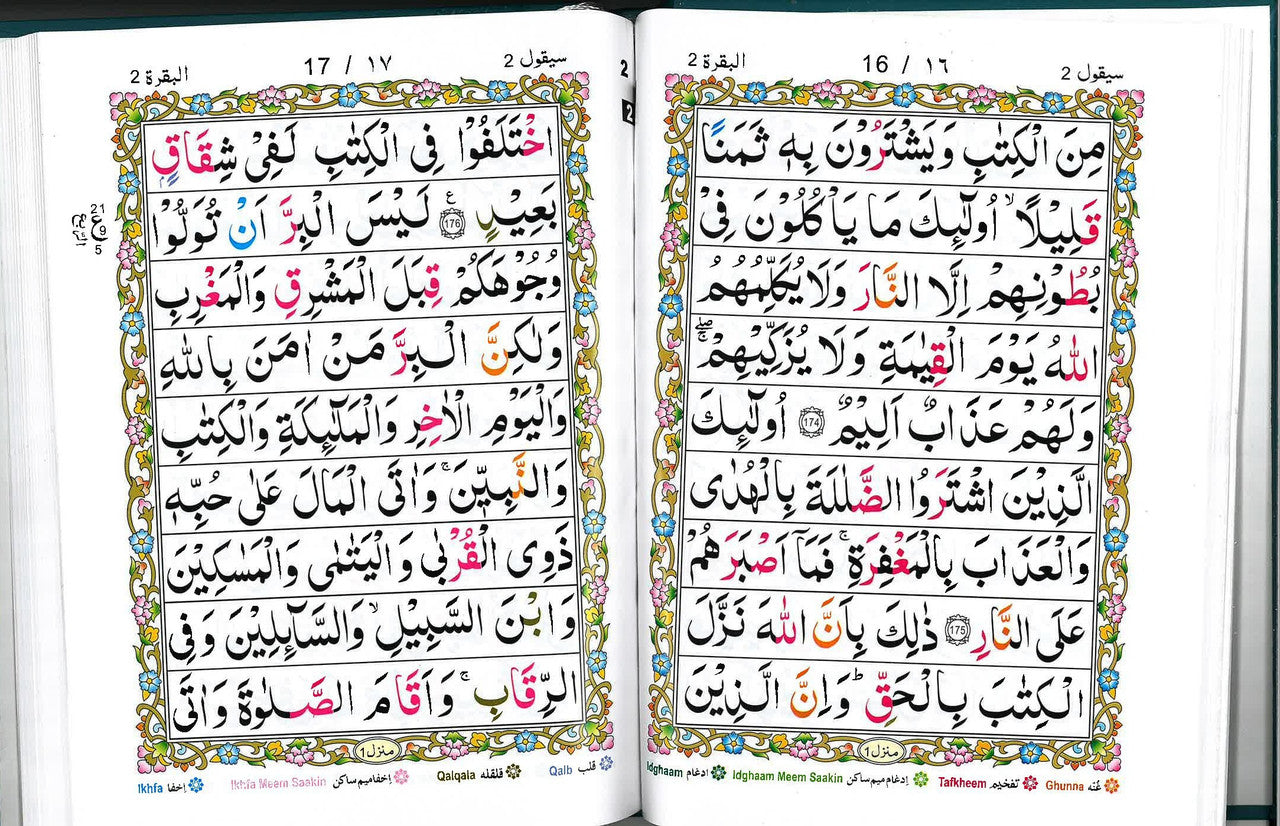 البقرة 2
16 / ١٦
سيقول 2
مِنَ الْكِتٰبِ وَيَشْتَرُوْنَ بِهٖ ثَمَنًا
قَلِيْلًا ۙ اُولٰٓئِكَ مَا يَاْكُلُوْنَ فِيْ
بُطُوْنِهِمْ اِلَّا النَّارَ وَلَا يُكَلِّمُهُمُ
اللّٰهُ يَوْمَ الْقِيٰمَةِ وَلَا يُزَكِّيْهِمْ ۖۚ
وَلَهُمْ عَذَابٌ اَلِيْمٌ 174 اُولٰٓئِكَ
الَّذِيْنَ اشْتَرَوُا الضَّلٰلَةَ بِالْهُدٰى
وَالْعَذَابَ بِالْمَغْفِرَةِ ۚ فَمَاۤ اَصْبَرَهُمْ
عَلَى النَّارِ 175 ذٰلِكَ بِاَنَّ اللّٰهَ نَزَّلَ
الْكِتٰبَ بِالْحَقِّ ؕ وَاِنَّ الَّذِيْنَ
منزل ١
Idghaam ادغام
Idghaam Meem Saakin إدغام ميم ساكن
Tafkheem تفخيم
Ghunna غُنّه
البقرة 2
17 / ١٧
سيقول 2
اخْتَلَفُوْا فِي الْكِتٰبِ لَفِيْ شِقَاقٍۭ
بَعِيْدٍ ع 176 لَيْسَ الْبِرَّ اَنْ تُوَلُّوْا
وُجُوْهَكُمْ قِبَلَ الْمَشْرِقِ وَالْمَغْرِبِ
وَلٰكِنَّ الْبِرَّ مَنْ اٰمَنَ بِاللّٰهِ
وَالْيَوْمِ الْاٰخِرِ وَالْمَلٰٓئِكَةِ وَالْكِتٰبِ
وَالنَّبِيّٖنَ ۚ وَاٰتَى الْمَالَ عَلٰى حُبِّهٖ
ذَوِي الْقُرْبٰى وَالْيَتٰمٰى وَالْمَسٰكِيْنَ
وَابْنَ السَّبِيْلِ ۙ وَالسَّآئِلِيْنَ وَفِي
الرِّقَابِ ۚ وَاَقَامَ الصَّلٰوةَ وَاٰتَى
21
ع 9
5
الربع
منزل ١
Ikhfa إخفا
Ikhfa Meem Saakin إخفا ميم ساكن
Qalqala قلقله
Qalb قلب
2
2